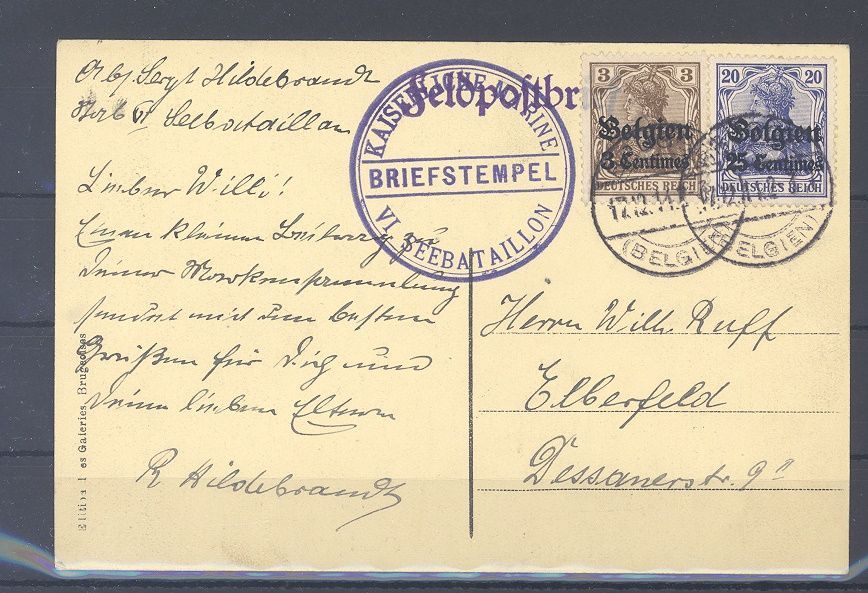 Abs. Sergt Hildebrandt
VI Seebataillon
Feldpostbr
KAISERLICHE MARINE
BRIEFSTEMPEL
VI. SEEBATAILLON
3 3
Belgien
3 Centimes
DEUTSCHES REICH
20 20
Belgien
25 Centimes
DEUTSCHES REICH
(BELGIEN)
(BELGIEN)
Lieber Willi!
Einen kleinen Beitrag zu
Deiner Markensammlung
sendet mit den besten
Grüßen für Dich und
Deine lieben Eltern
R Hildebrandt
Herrn Willi Ruff
Elberfeld
Dessauerstr. 9
es Galeries, Bruxelles